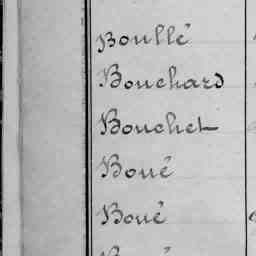 Boullé
Bouchard
Bouchet
Boué
Boué